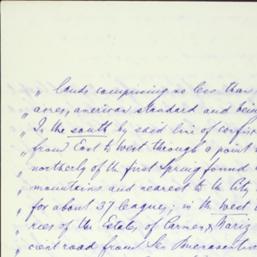 " lands comprising no less than
" acres, american standard and bein
" In the south by said line of
" from East to West through a point
" northerly of the first Spring found
" mountains and nearest to the City
" for about 37 leagues; in the west
" ries of the Estate, of Carnery
" cient road from San Buenaventu